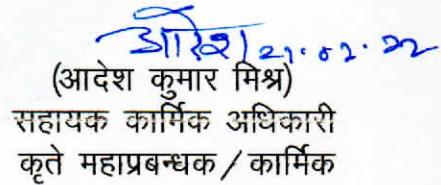 आदेश 21.02.22
(आदेश कुमार मिश्र)
सहायक कार्मिक अधिकारी
कृते महाप्रबन्धक / कार्मिक